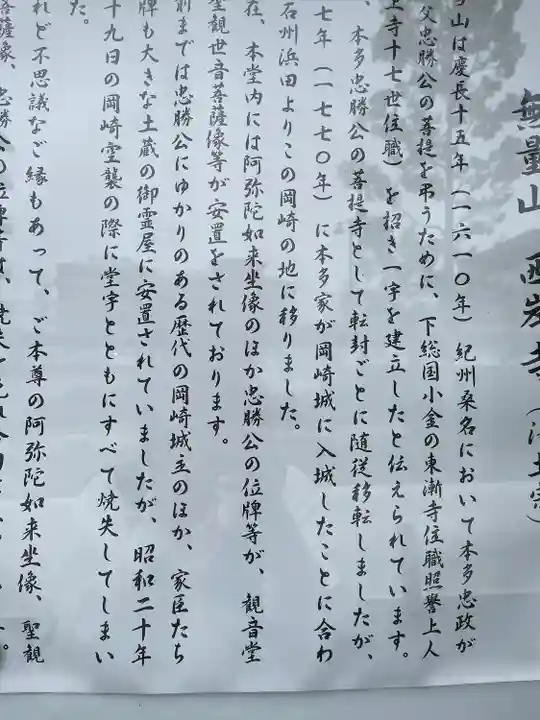 無量山 西岸寺（浄土宗）
山は慶長十五年（一六一〇年）紀州桑名において本多忠政が
父忠勝公の菩提を弔うために、下総国小金の東漸寺住職照誉上人
上寺十七世住職）を招き一宇を建立したと伝えられています。
、本多忠勝公の菩提寺として転封ごとに随従移転しましたが、
七年（一七七〇年）に本多家が岡崎城に入城したことに合わ
石州浜田よりこの岡崎の地に移りました。
在、本堂内には阿弥陀如来坐像のほか忠勝公の位牌等が、観音堂
聖観世音菩薩像等が安置をされております。
前までは忠勝公にゆかりのある歴代の岡崎城主のほか、家臣たち
牌も大きな土蔵の御霊屋に安置されていましたが、昭和二十年
十九日の岡崎空襲の際に堂宇とともにすべて焼失してしまい
た。
れど不思議なご縁もあって、ご本尊の阿弥陀如来坐像、聖観
菩薩像、忠勝公の位牌等は、焼失を免れ